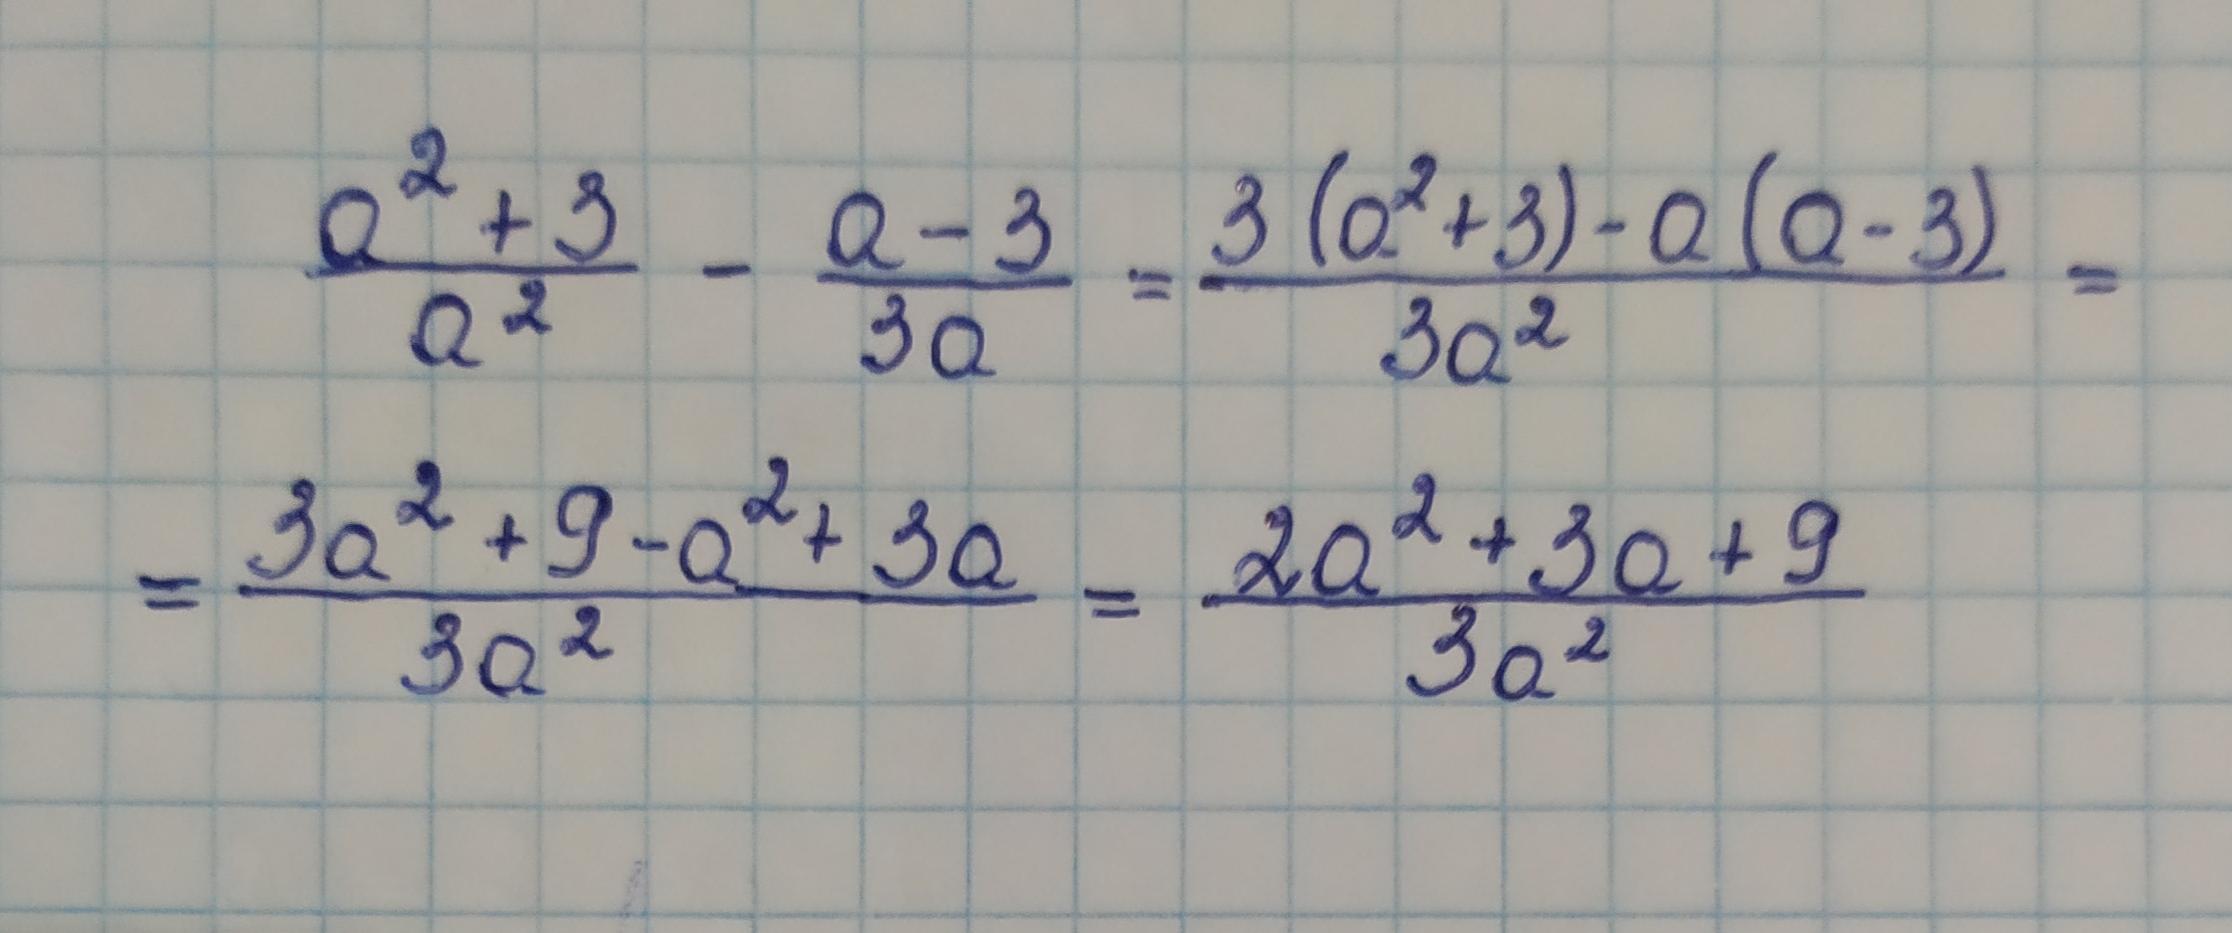 (a² + 3)/a² - (a - 3)/3a = (3(a² + 3) - a(a - 3))/3a² =
= (3a² + 9 - a² + 3a)/3a² = (2a² + 3a + 9)/3a²